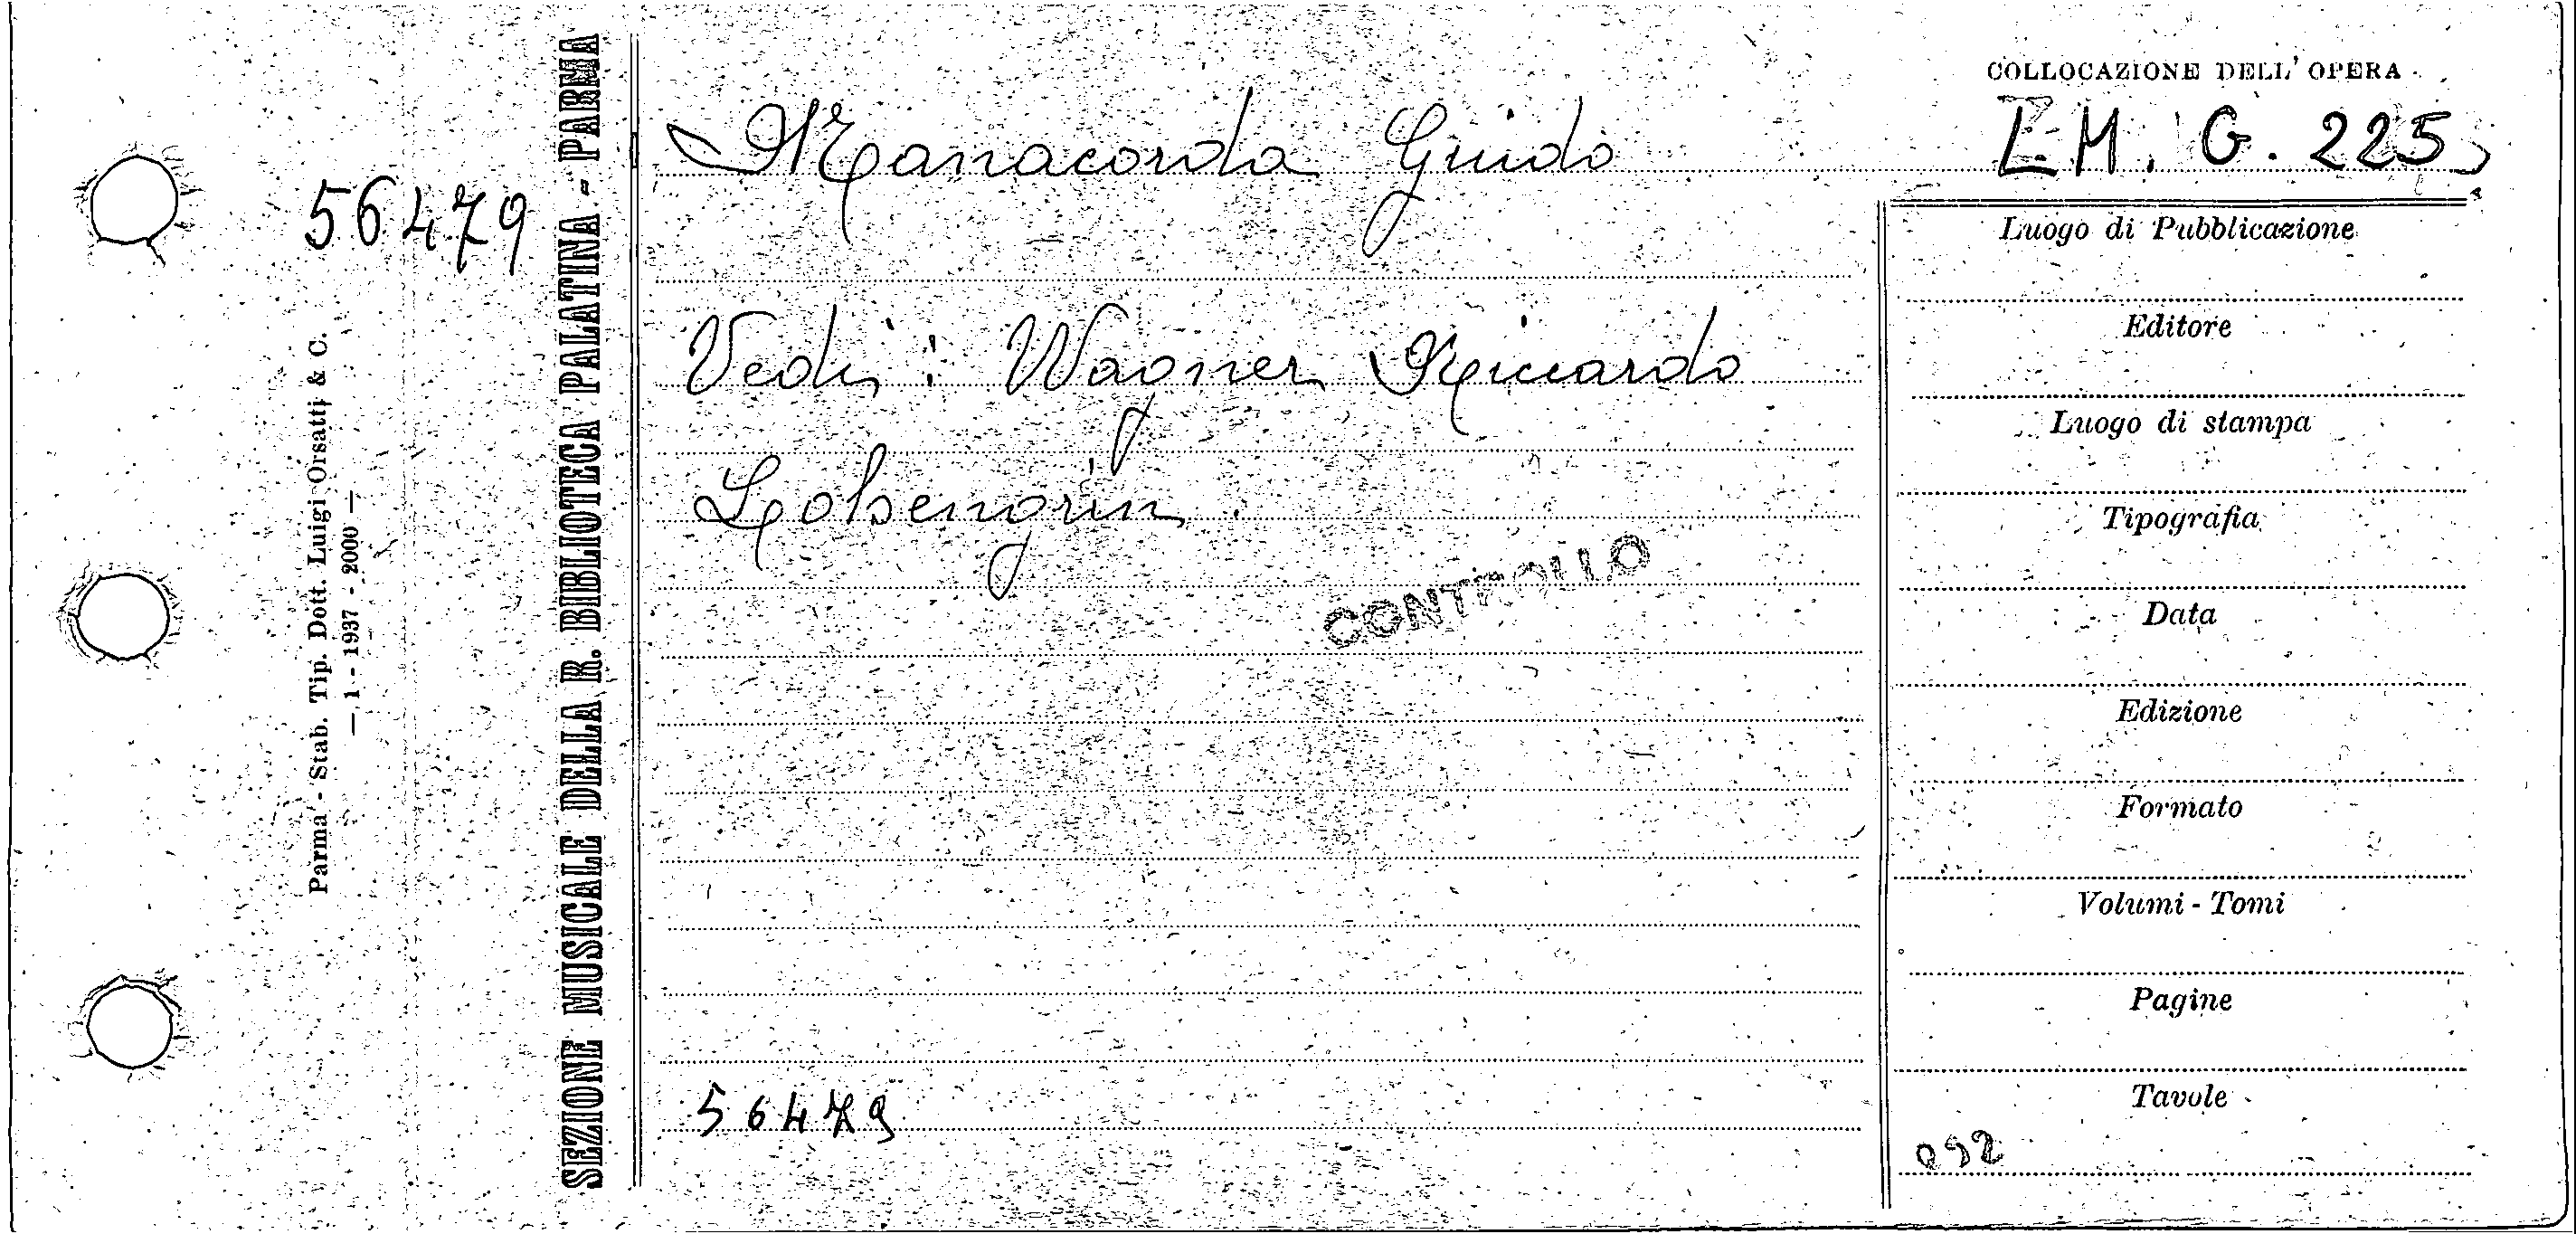 COLLOCAZIONE DELL' OPERA
Manacorda Guido
L.M. G. 225
56479
Vedi: Wagner Riccardo
Lohengrin.
CONTROLLO
56479
Luogo di Pubblicazione
Editore
Luogo di stampa
Tipografia
Data
Edizione
Formato
Volumi - Tomi
Pagine
Tavole
092
SEZIONE MUSICALE DELLA R. BIBLIOTECA PALATINA - PARMA
Parma - Stab. Tip. Dott. Luigi Orsatti & C.
— 1 - 1937 - 2000 —